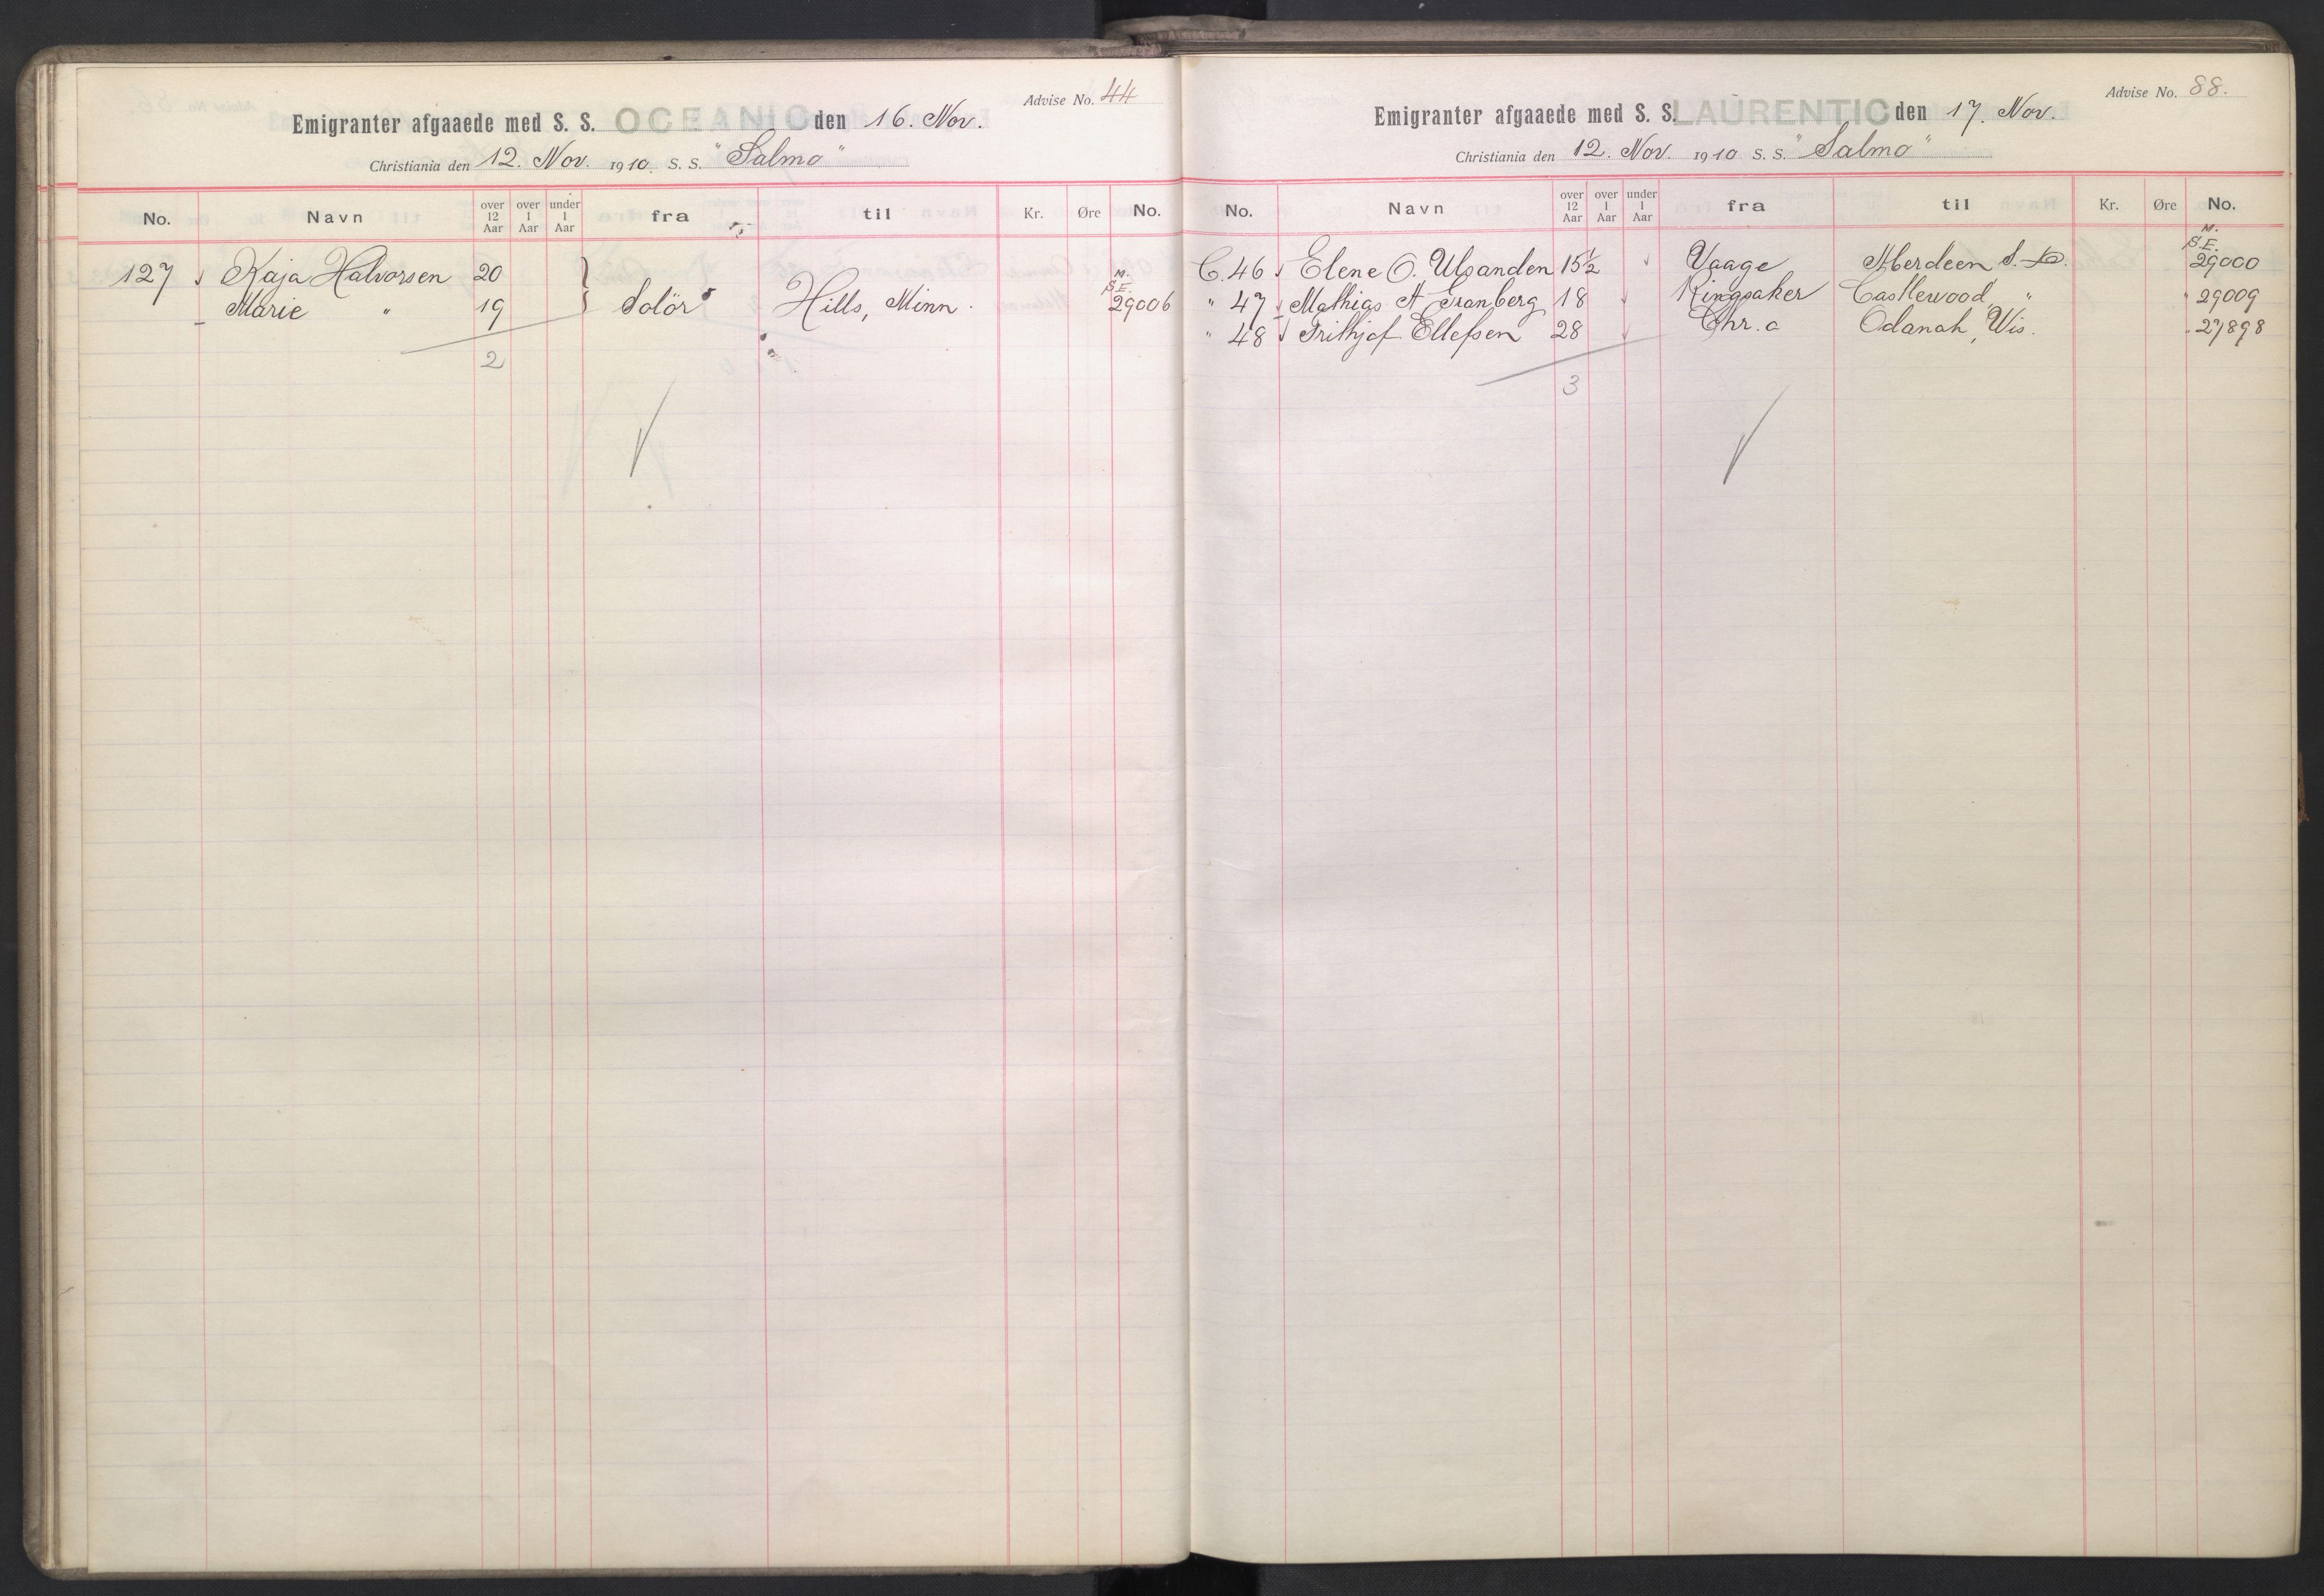 Advise No. 44
Emigranter afgaaede med S. S. OCEANIC den 16. Nov.
Christiania den 12. Nov. 1910. S. S. "Salmo"
No. Navn over 12 Aar over 1 Aar under 1 Aar fra til Kr. Øre No.
127 Kaja Halvorsen 20
M.
S.E.
Marie " 19 Solör Hills, Minn. 29006
2
Advise No. 88.
Emigranter afgaaede med S. S. LAURENTIC den 17. Nov.
Christiania den 12. Nov. 1910 S. S. "Salmo"
No. Navn over 12 Aar over 1 Aar under 1 Aar fra til Kr. Øre No.
M.
S.E.
C. 46 Elene O. Ulsanden 15½ Vaage Aberdeen S. D. 29000
" 47 Mathias A Granberg 18 Ringsaker Castlewood, " " 29009
" 48 Frithjof Ellefsen 28 Chr.a Odanah, Wis. " 27898
3